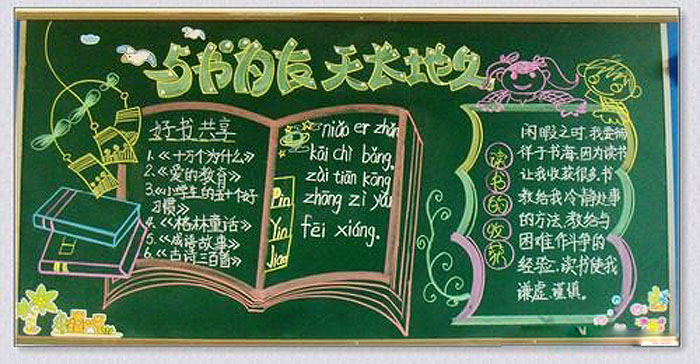 与书为友 天长地久
好书共享
1.《十万个为什么》
2.《爱的教育》
3.《小学生的五十个好
习惯》
4.《格林童话》
5.《成语故事》
6.《古诗三百首》
Pin
Yin
niǎo er zhǎn
kāi chì bǎng,
zài tiān kōng
zhōng zì yóu
fēi xiáng.
读书的收获
闲暇之时,我要徜
徉于书海,因为读书
让我收获很多,书
教给我冷静处事
的方法,教给与
困难作的
经验,读书使我
谦虚,谨慎。